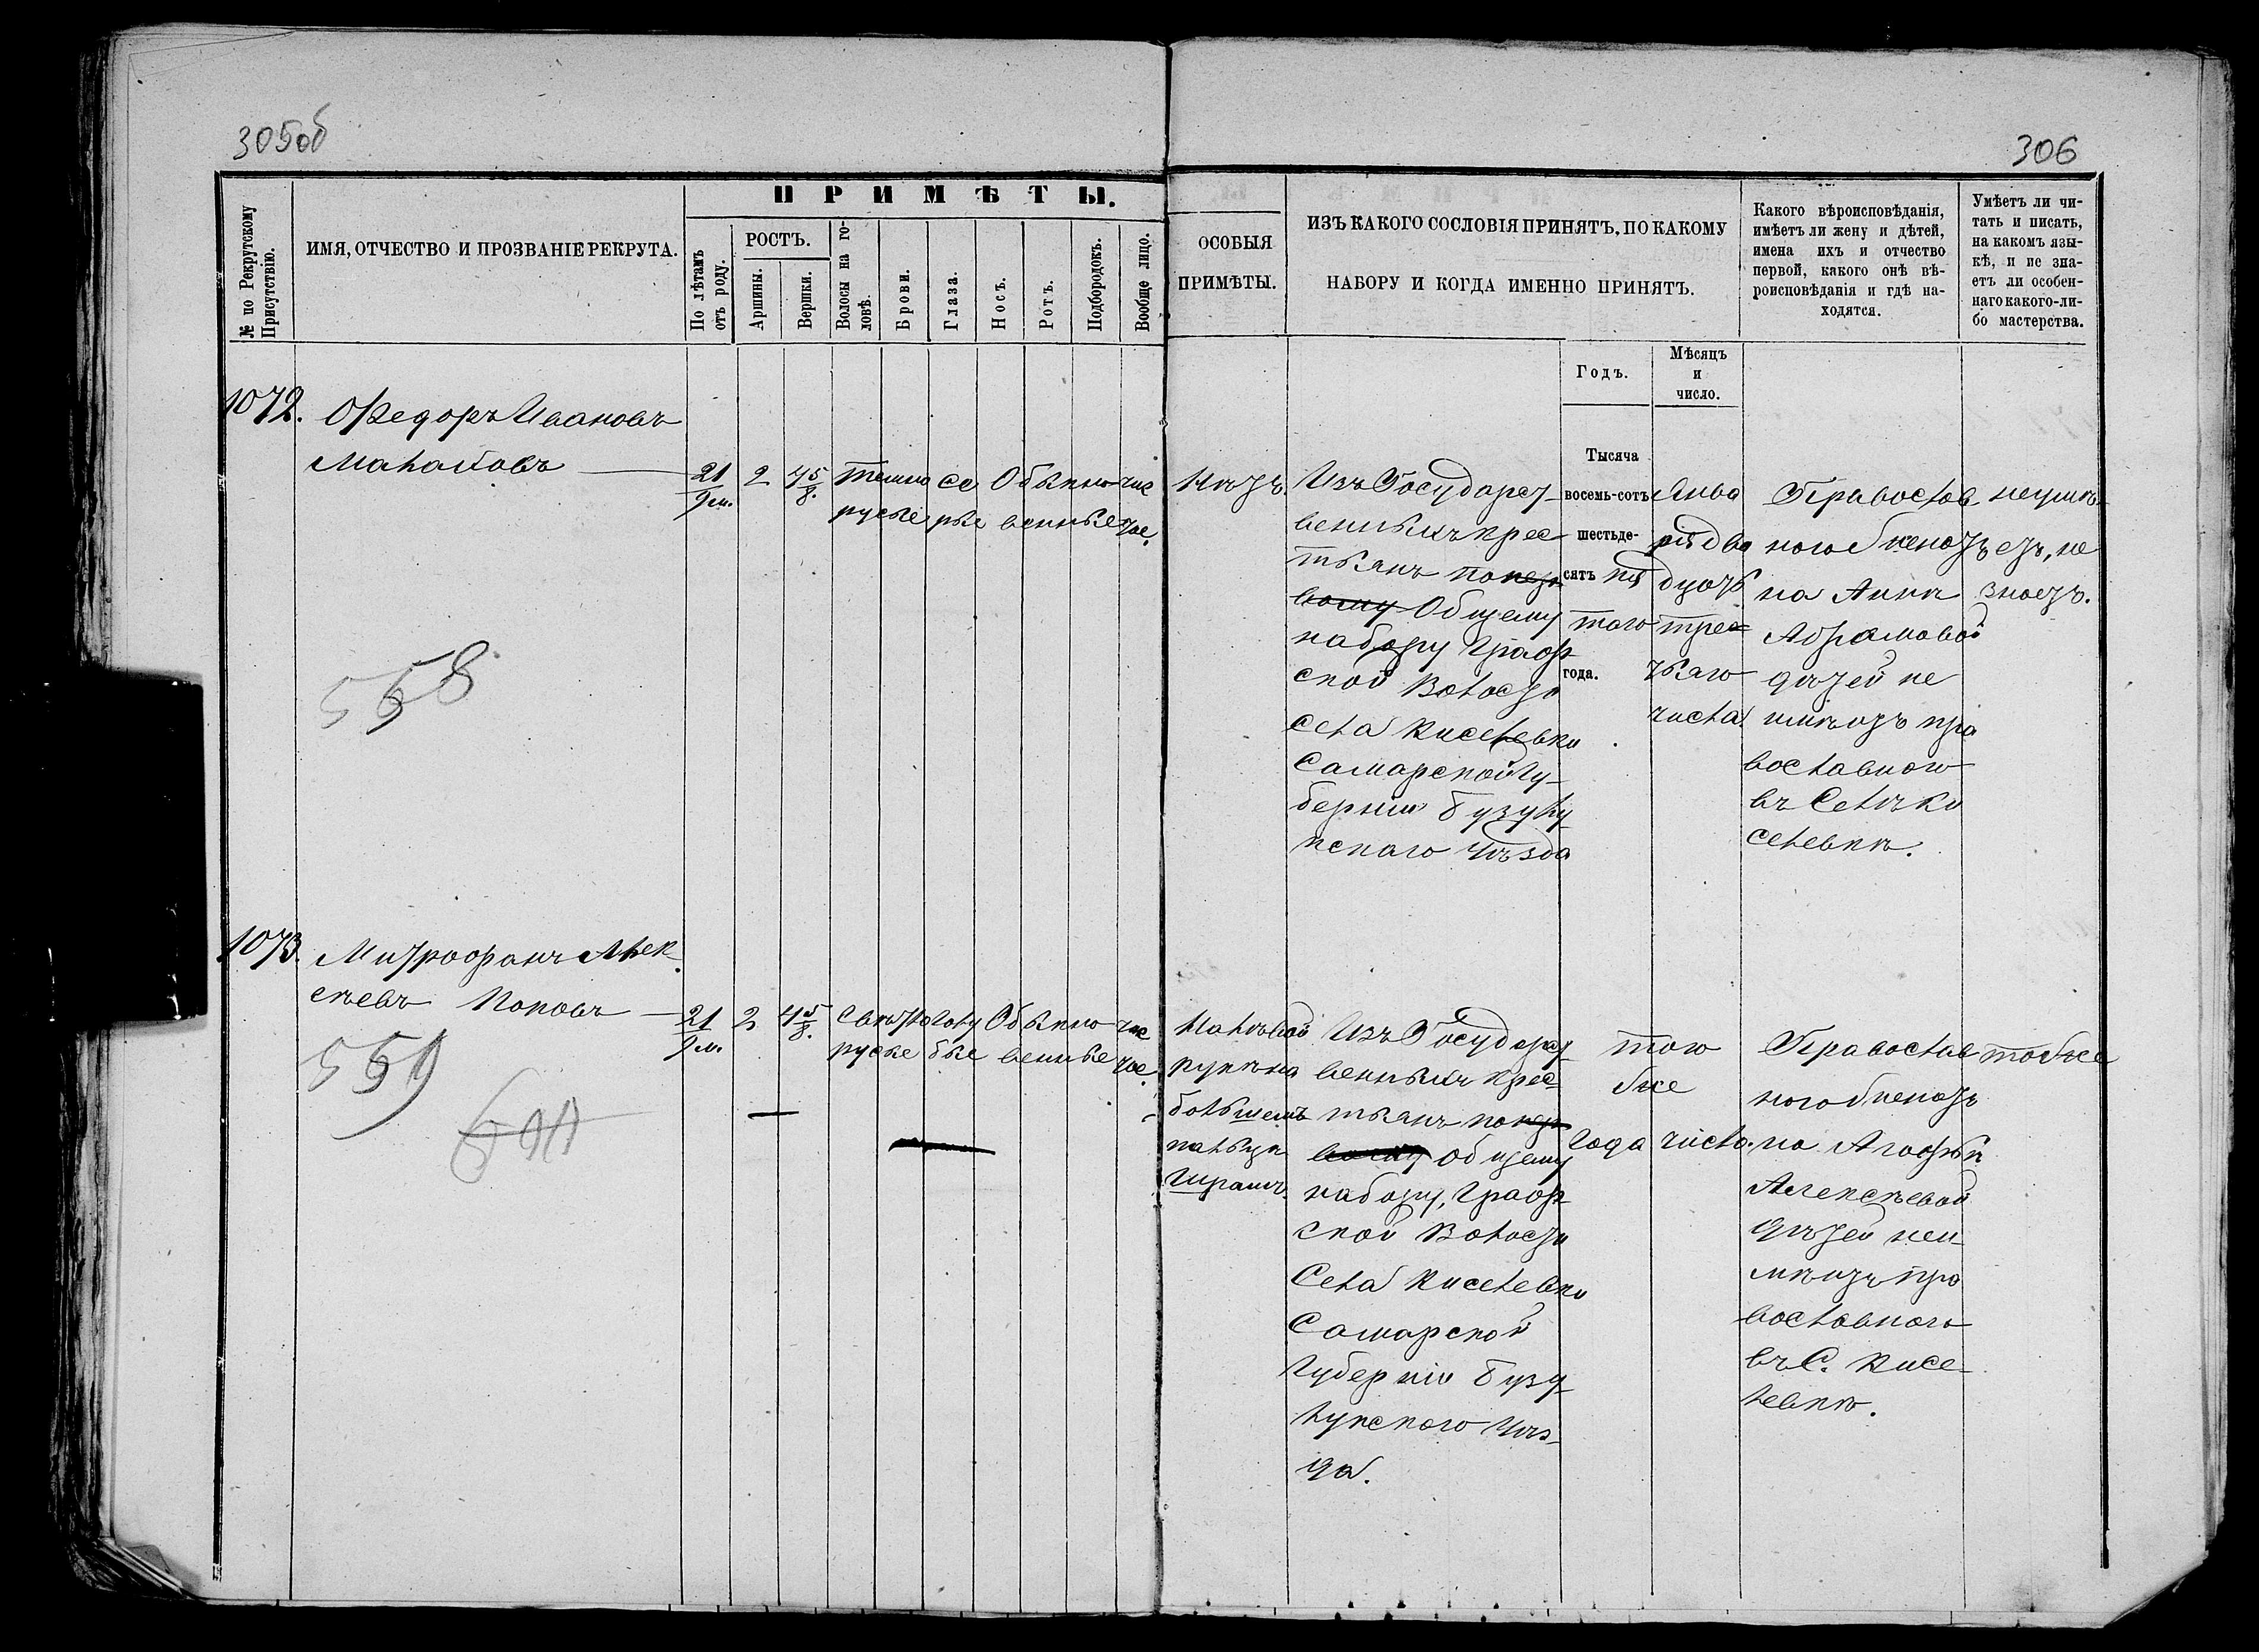 305об
306
№ по Рекрутскому
Присутствію.
ИМЯ, ОТЧЕСТВО И ПРОЗВАНІЕ РЕКРУТА.
ПРИМѢТЫ.
По лѣтамъ
отъ роду.
РОСТЪ.
Аршины.
Вершки.
Волосы на го-
ловѣ.
Брови.
Глаза.
Носъ.
Ротъ.
Подбородокъ.
Вообще лицо.
ОСОБЫЯ
ПРИМѢТЫ.
ИЗЪ КАКОГО СОСЛОВІЯ ПРИНЯТЪ, ПО КАКОМУ
НАБОРУ И КОГДА ИМЕННО ПРИНЯТЪ.
Какого вѣроисповѣданія,
имѣетъ ли жену и дѣтей,
имена ихъ и отчество
первой, какого онѣ вѣ-
роисповѣданія и гдѣ на-
ходятся.
Умѣетъ ли чи-
тать и писать,
на какомъ язы-
кѣ, и не зна-
етъ ли особен-
наго какого-ли-
бо мастерства.
Годъ.
Мѣсяцъ
и
число.
1072.
Ѳедоръ Ивановъ
21
9 м.
2
4 5/8.
темно
русые
се
рые
Обыкно
венные
чис
тое.
Нѣтъ.
Изъ Государст-
венныхъ крес
тьянъ по
Общему
набору Граф
ской Волости
села Киселевки
Самарской Гу-
берніи Бузулу
кскаго Уѣзда
Тысяча
восемь-сотъ
шестьде-
сятъ пя
таго
года.
Янва
ря два
дцать
тре=
тьяго
числа.
Православ
наго женатъ
на Аннѣ
Абрамовой
дѣтей не
имѣютъ пра
вославного
въ Селѣ Ки
селевкѣ.
неумѣ
етъ, не
знаетъ.
558
1073.
Митрофанъ Алек
сѣевъ Поповъ
21
9 м.
2
4 5/8.
Свѣтло
русые
голу
бые
Обыкно
венные
чис
тое.
На лѣвой
рукѣ на
большемъ
пальцѣ
шрамъ.
Изъ Государст
венныхъ крес=
тьянъ по
Общему
набору, Граф
ской Волости
Села Киселевки
Самарской
Губерніи Бузу
лукского Уѣз-
да.
того
же
года
числа.
Православ
ного женатъ
на Агафьѣ
Алексѣевой
дѣтей неи
мѣютъ пра
вославного
въ С. Кисе-
левкѣ.
тоже
559